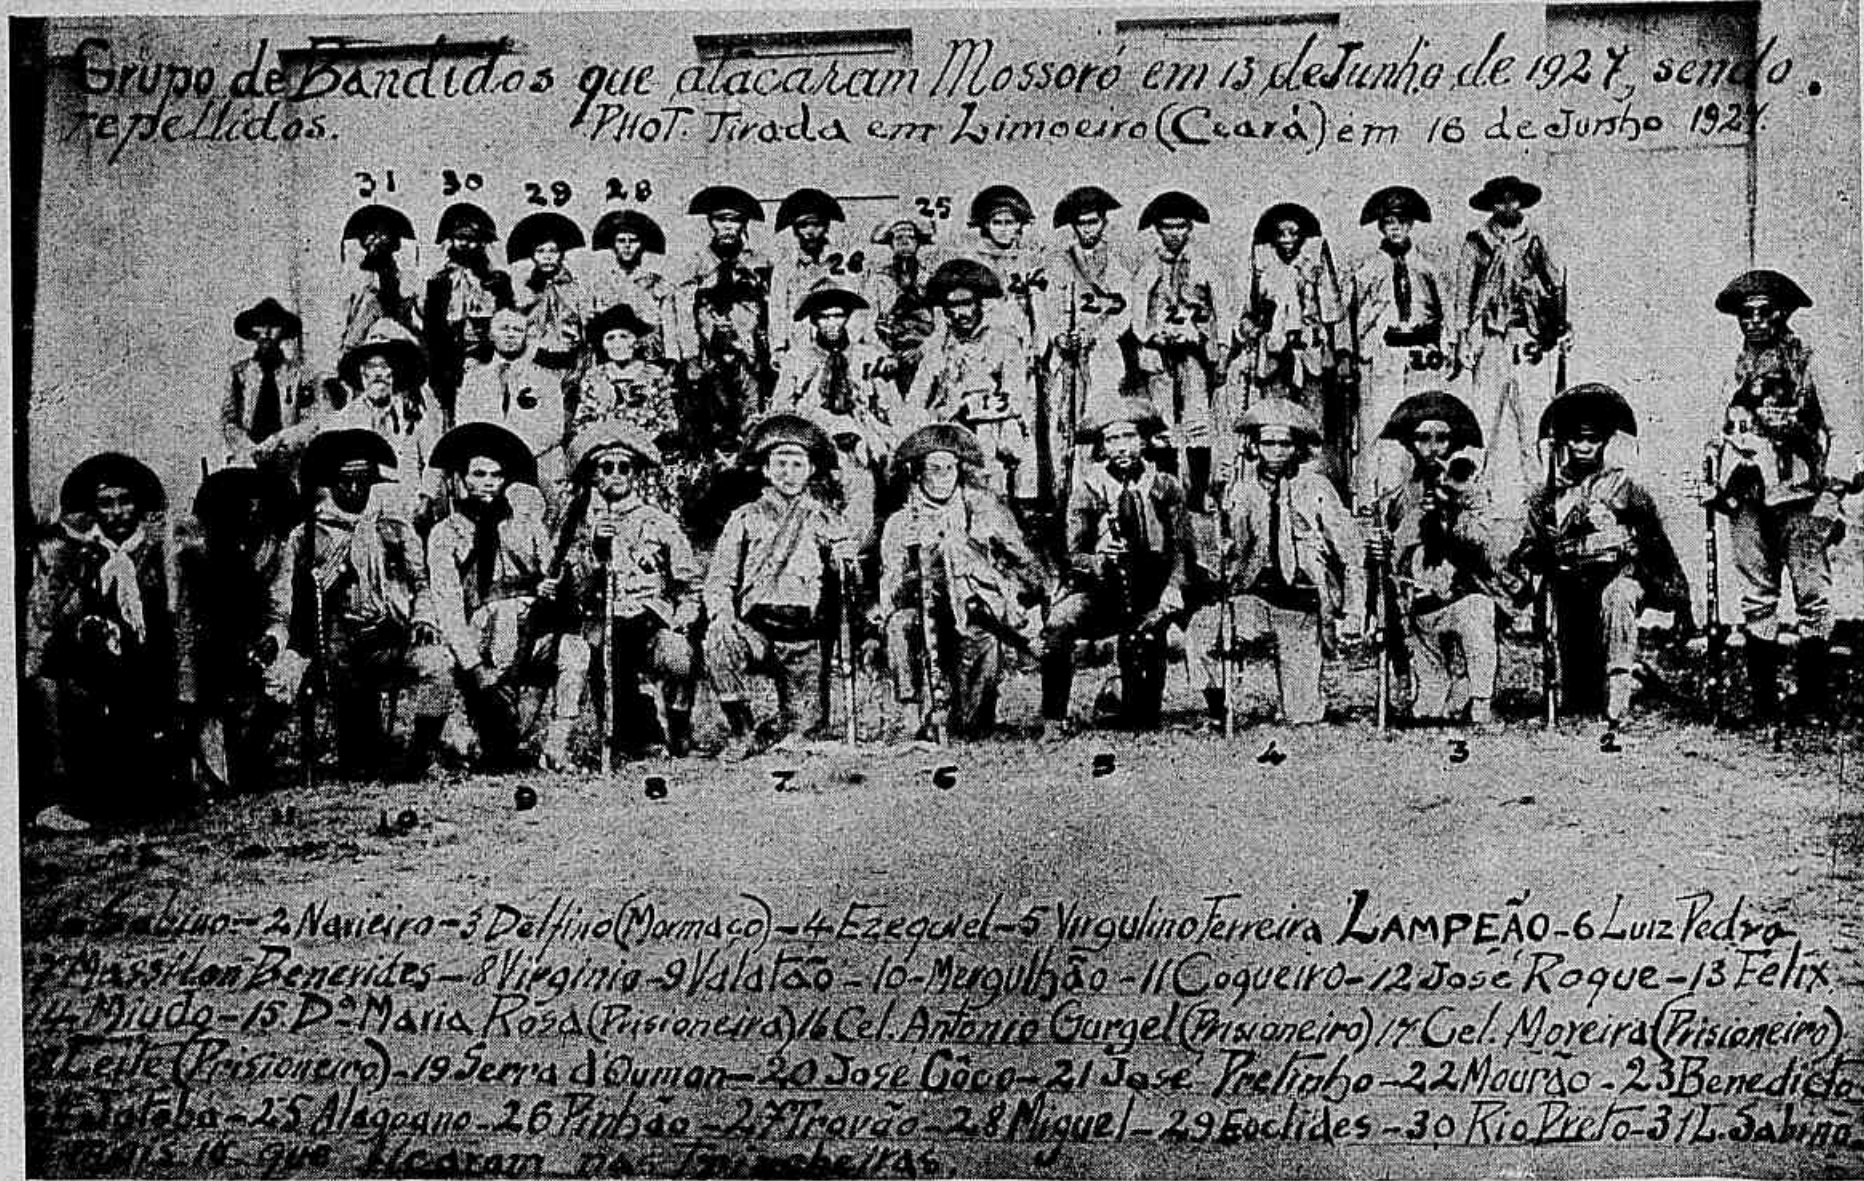 Grupo de Bandidos que atacaram Mossoró em 13 de Junho de 1927, sendo
repellidos. PHOT. Tirada em Limoeiro (Ceará) em 16 de Junho 1927.
31 30 29 28 25
26 24 23 22 21 20 19
17 16 15 14 13
11 10 9 8 7 6 5 4 3 2 1
Sabino - 2 - 3 Delfino (Mormaço) - 4 Ezequiel - 5 Virgulino Ferreira LAMPEÃO - 6 Luiz Pedro
7 Massilon Benevides - 8 Virginio - 9 Valatão - 10 - Mergulhão - 11 Coqueiro - 12 José Roque - 13 Felix
14 Miudo - 15 Dª Maria Rosa (Prisioneira) 16 Cel. Antonio Gurgel (Prisioneiro) 17 Cel. Moreira (Prisioneiro)
Leite (Prisioneiro) - 19 Serra d'Uman - 20 José Côco - 21 José Pretinho - 22 Mourão - 23 Benedicto
Jatobá - 25 Alagoano - 26 Pinhão - 27 Trovão - 28 Miguel - 29 Euclides - 30 Rio Preto - 31 L. Sabino
mais que ficaram nas Trincheiras.